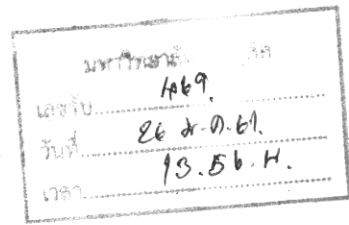 มหาวิทยาลัย
เลขรับ 469
วันที่ 26 ม.ค. 61
เวลา 13.56 น.